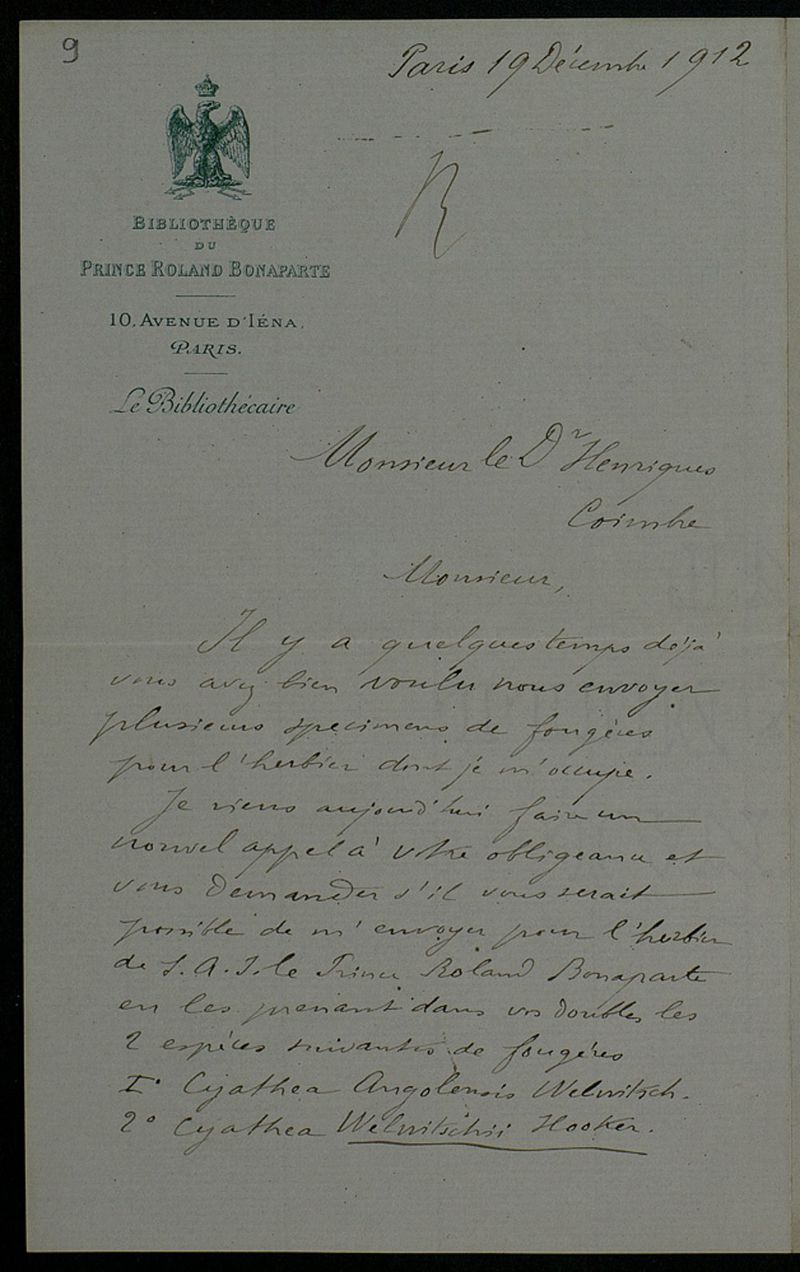 9
Paris 19 Décembre 1912
R
BIBLIOTHÈQUE
DU
PRINCE ROLAND BONAPARTE
10, AVENUE D'IÉNA,
PARIS.
Le Bibliothécaire
Monsieur le Dr Henriques
Coimbre
Monsieur,
Il y a quelques temps déjà
vous avez bien voulu nous envoyer
plusieurs specimens de fougères
pour l'herbier dont je m'occupe.
Je viens aujourd'hui faire un
nouvel appel à votre obligeance et
vous demander s'il vous serait
possible de m'envoyer pour l'herbier
de S. A. I. le Prince Roland Bonaparte
en les prenant dans vos doubles les
2 espèces suivantes de fougères
1° Cyathea Angolensis Welwitsch.
2° Cyathea Welwitschii Hooker.